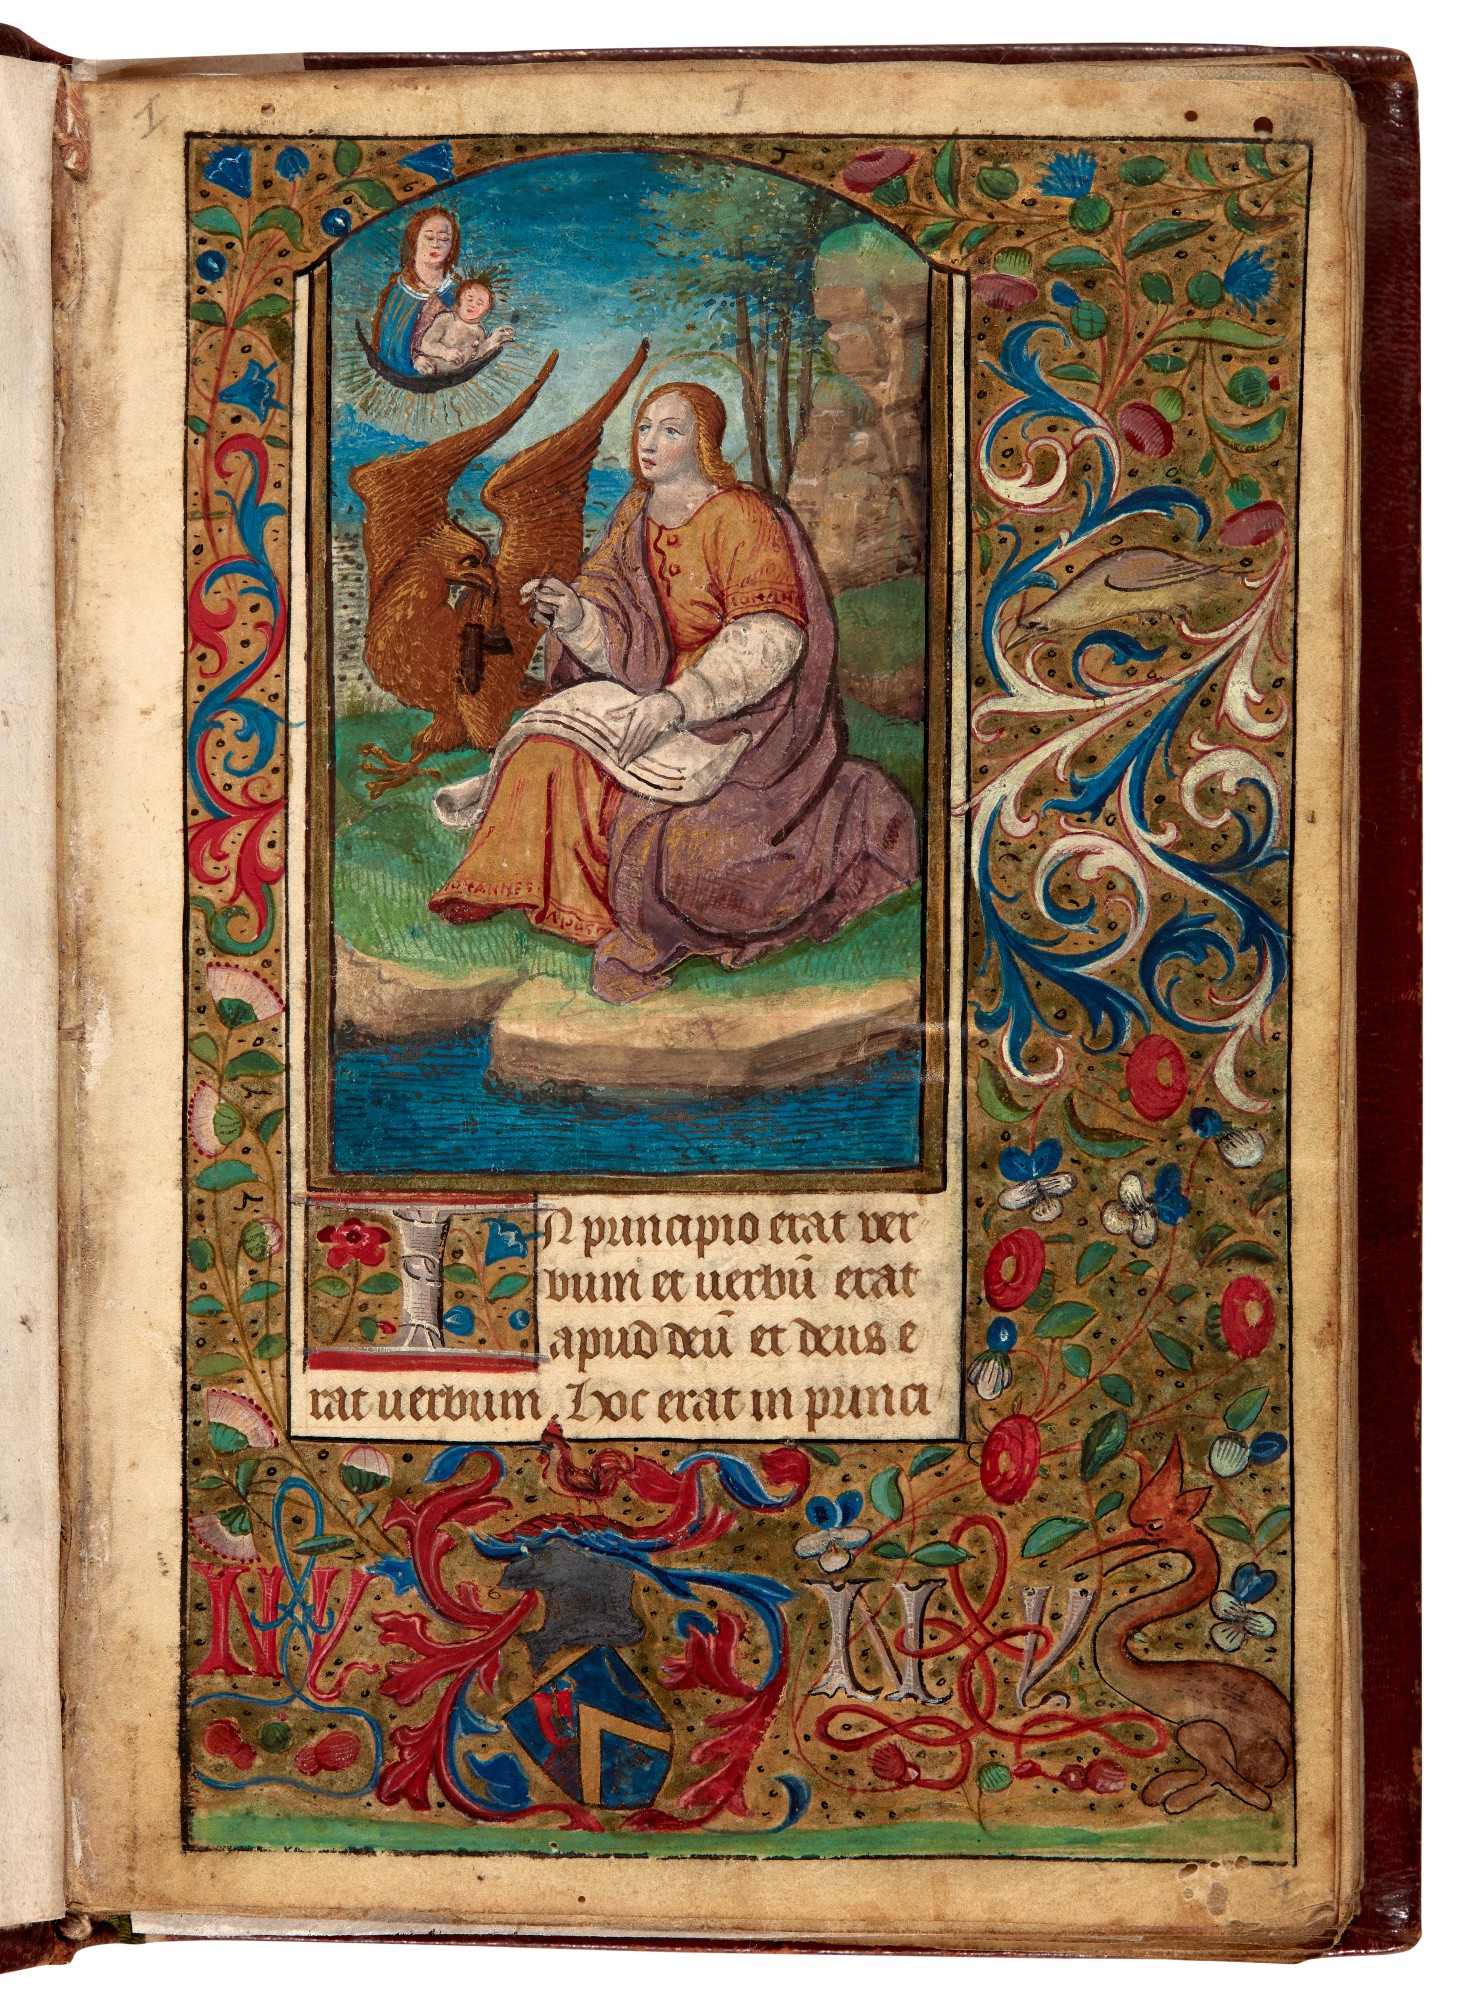 I
I
IOHANN
IOHANNES
IN principio erat ver
bum et verbū erat
apud deū et deus e
rat verbum. Hoc erat in princi
N V
N V